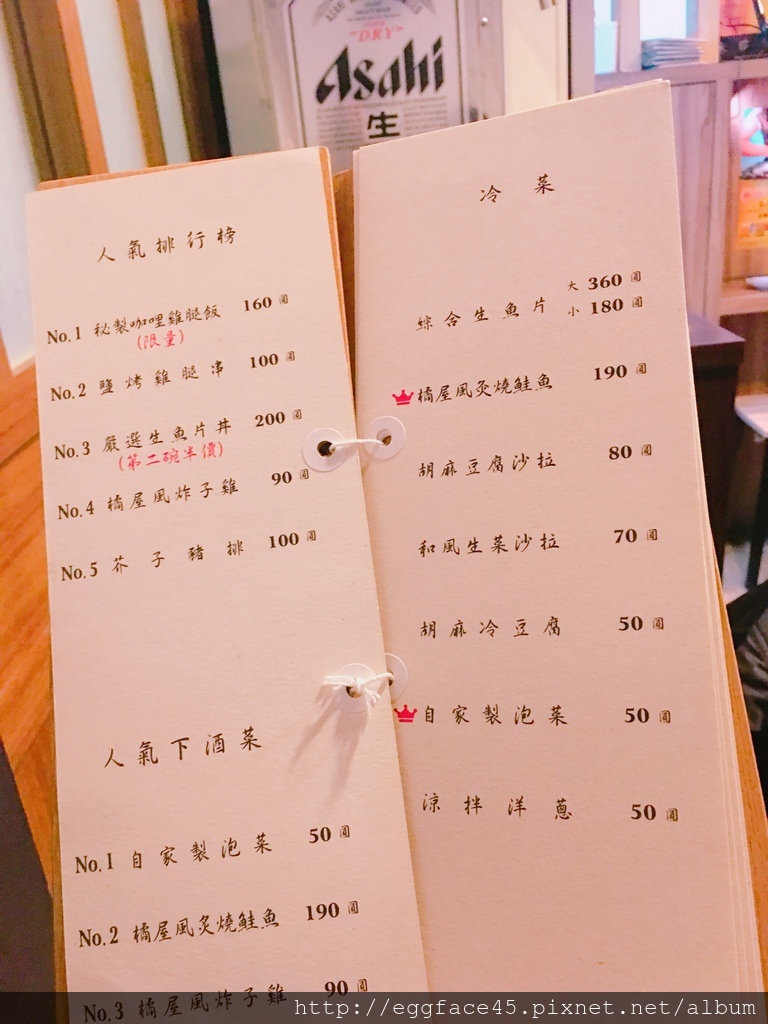 "DRY"
Asahi
生
人氣排行榜
No.1 秘製咖哩雞腿飯 160圓
(限量)
No.2 鹽烤雞腿串 100圓
No.3 嚴選生魚片丼 200圓
(第二碗半價)
No.4 橘屋風炸子雞 90圓
No.5 芥子豬排 100圓
人氣下酒菜
No.1 自家製泡菜 50圓
No.2 橘屋風炙燒鮭魚 190圓
No.3 橘屋風炸子雞 90圓
冷菜
綜合生魚片 大 360圓
小 180圓
橘屋風炙燒鮭魚 190圓
胡麻豆腐沙拉 80圓
和風生菜沙拉 70圓
胡麻冷豆腐 50圓
自家製泡菜 50圓
涼拌洋蔥 50圓
http://eggface45.pixnet.net/album